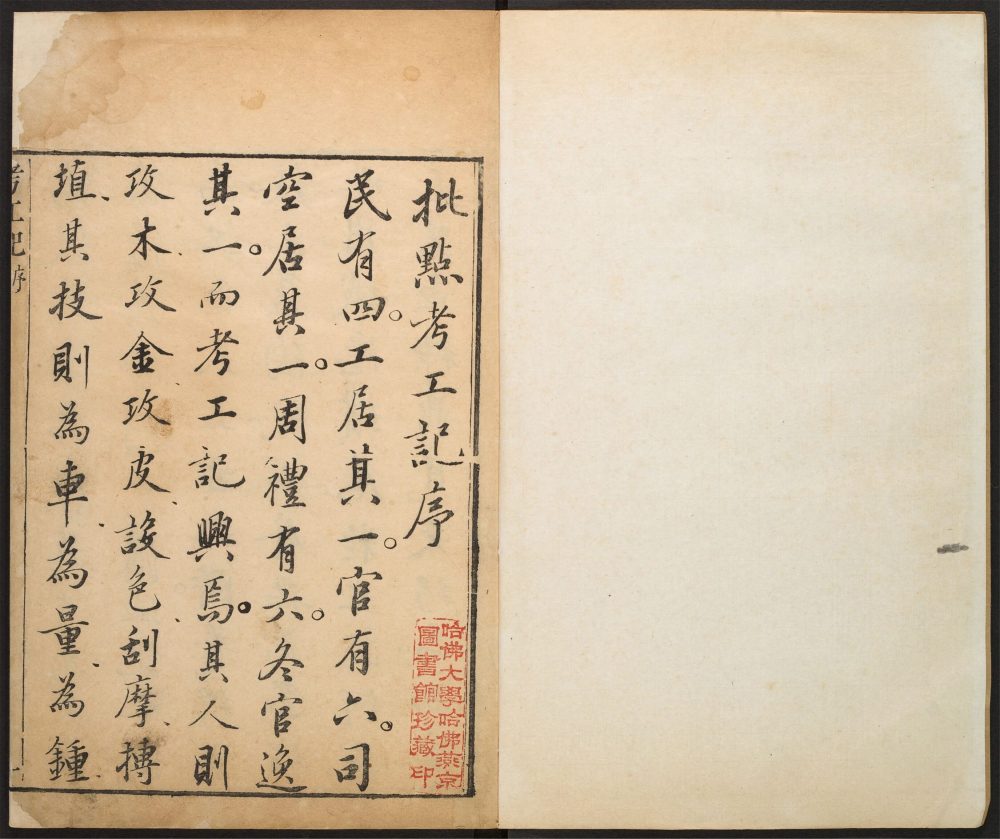 批點考工記序
民有四工居其一官有六司
空居其一周禮有六冬官逸
其一而考工記興焉其人則
攻木攻金攻皮設色刮摩摶
埴其技則為車為量為鍾
考工記序
哈佛大學哈佛燕京
圖書館珍藏印